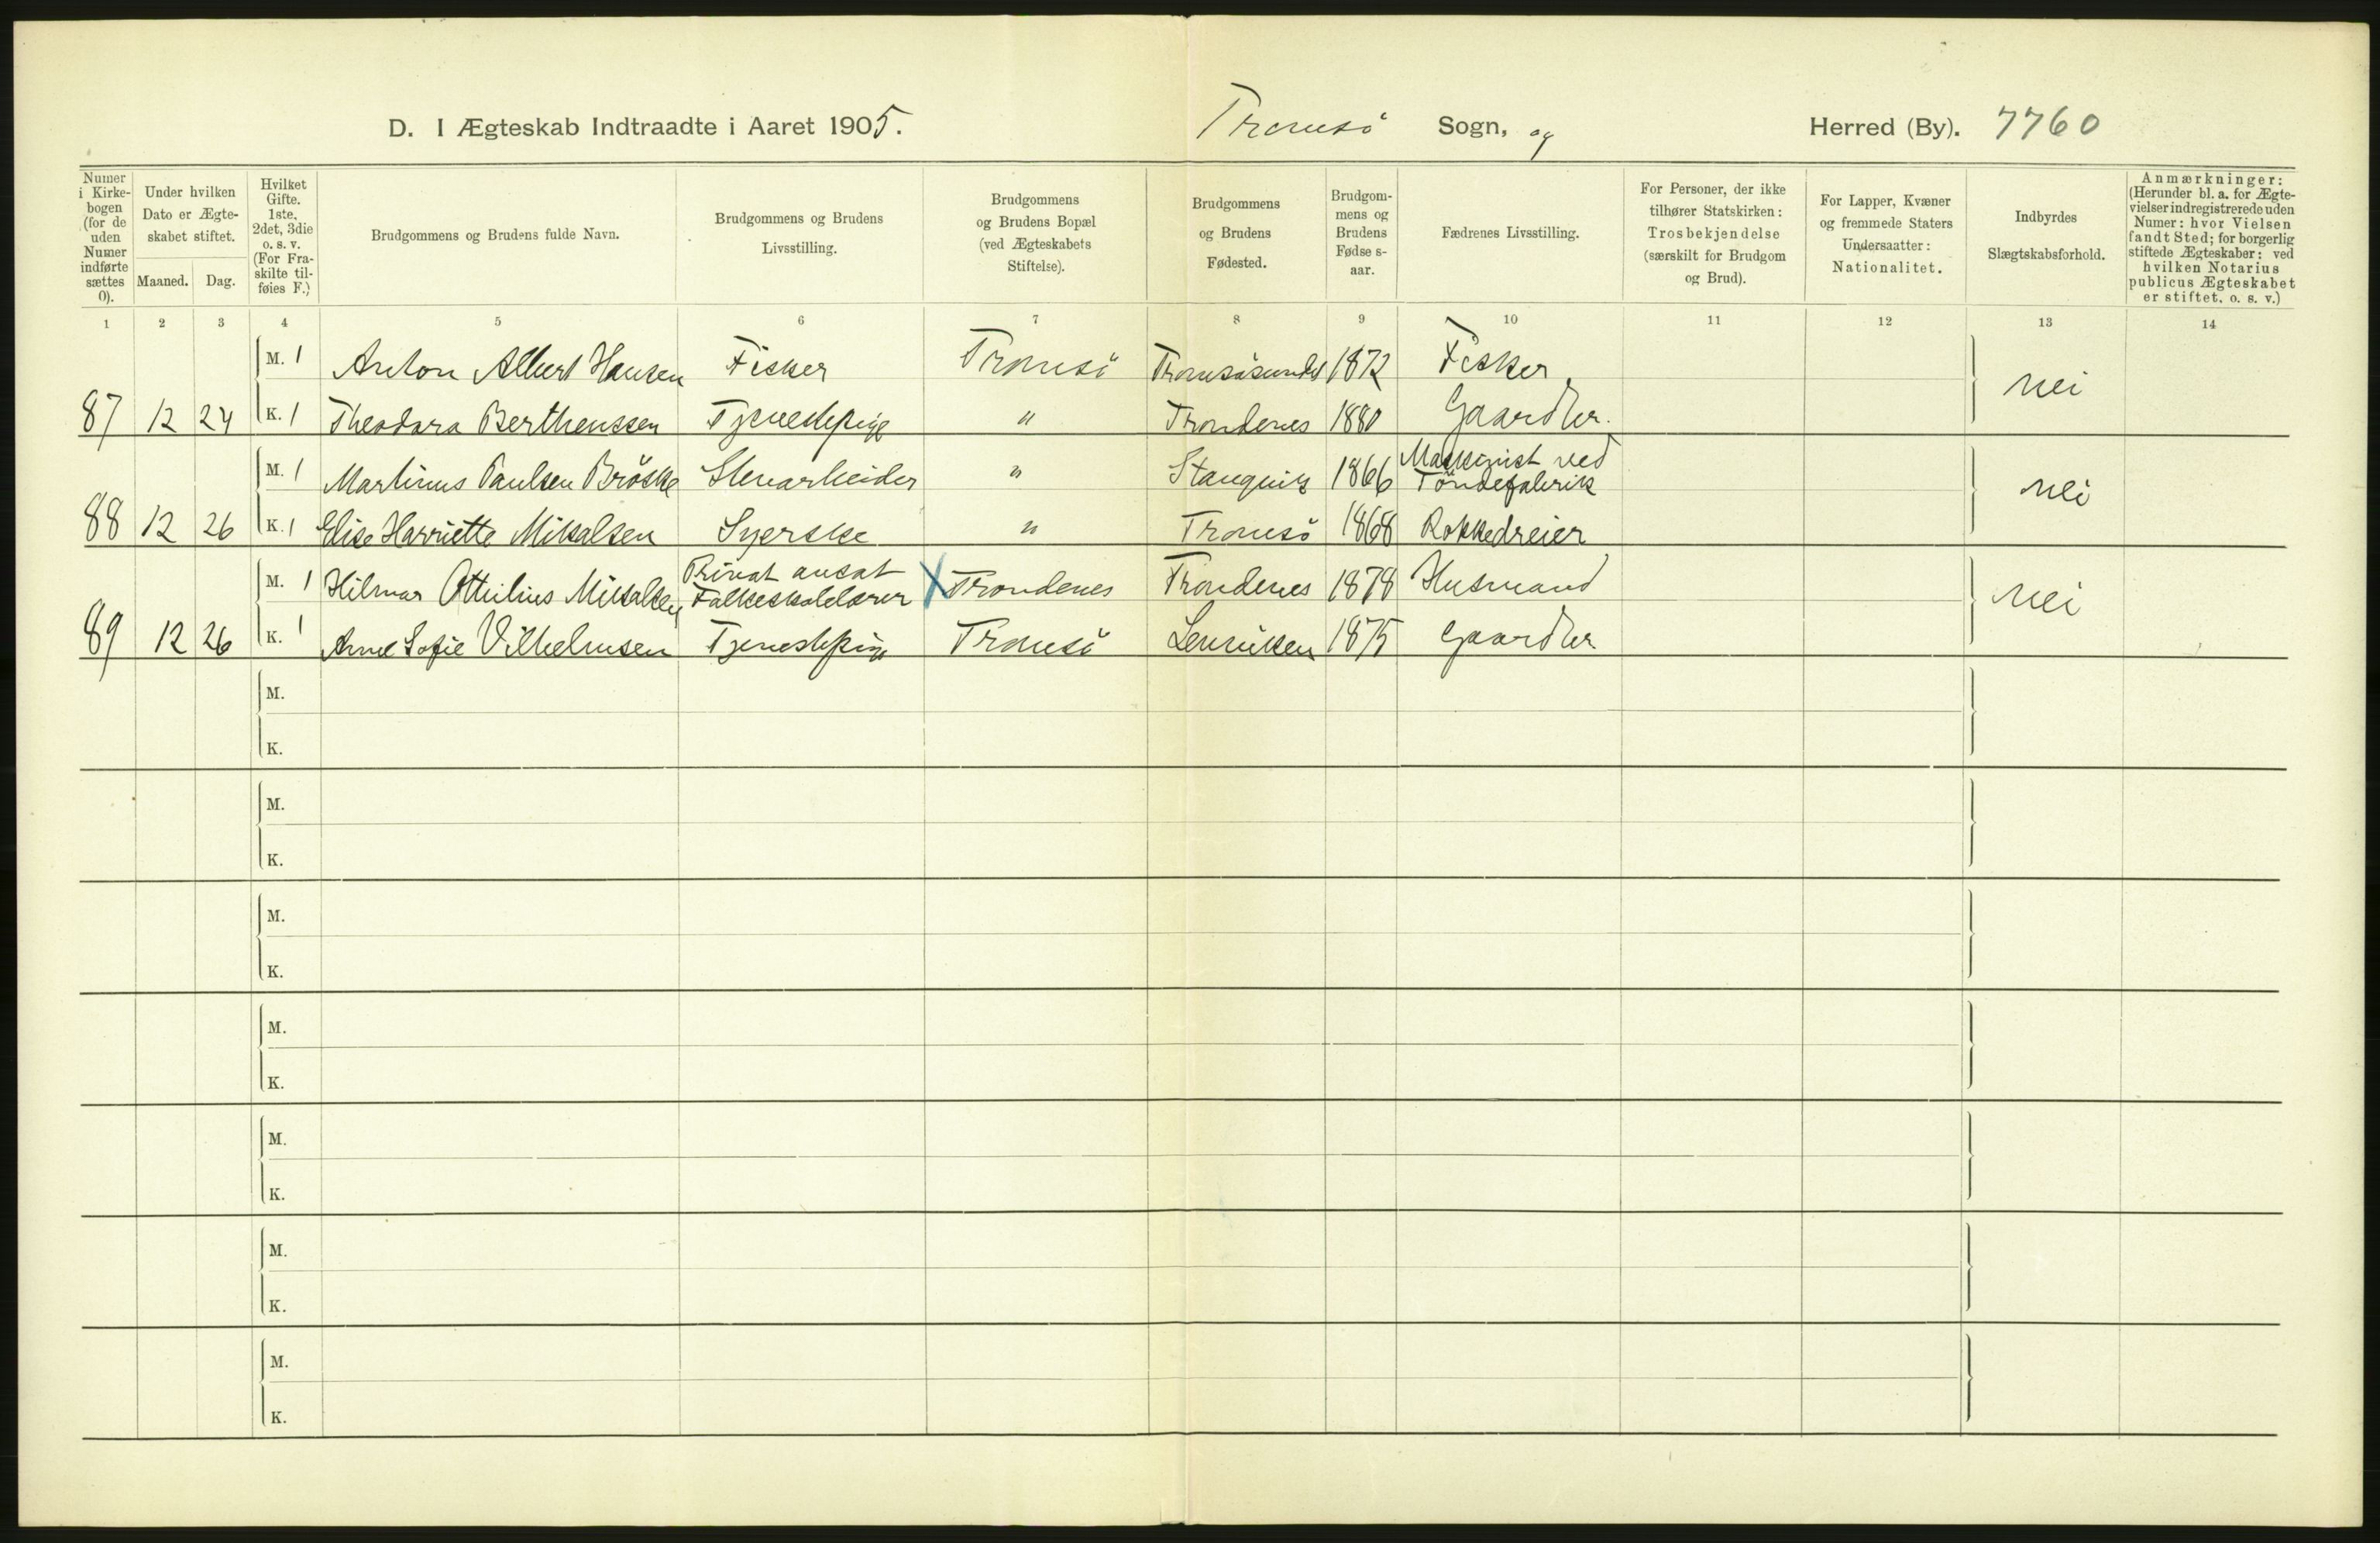 D. I Ægteskab Indtraadte i Aaret 1905. Tromsö Sogn, og Herred (By). 7760
Numer i Kirke-bogen (for de uden Numer indførte sættes 0).
Under hvilken Dato er Ægte-skabet stiftet.
Maaned. Dag.
Hvilket Gifte. 1ste, 2det, 3die o. s. v. (For Fra-skilte til-føies F.)
Brudgommens og Brudens fulde Navn.
Brudgommens og Brudens Livsstilling.
Brudgommens og Brudens Bopæl (ved Ægteskabets Stiftelse).
Brudgommens og Brudens Fødested.
Brudgom-mens og Brudens Fødse s-aar.
Fædrenes Livsstilling.
For Personer, der ikke tilhører Statskirken: Trosbekjendelse (særskilt for Brudgom og Brud).
For Lapper, Kvæner og fremmede Staters Undersaatter: Nationalitet.
Indbyrdes Slægtskabsforhold.
Anmærkninger: (Herunder bl. a. for Ægte-vielser indregistrerede uden Numer: hvor Vielsen fandt Sted; for borgerlig stiftede Ægteskaber: ved hvilken Notarius publicus Ægteskabet er stiftet, o. s. v.)
1 2 3 4 5 6 7 8 9 10 11 12 13 14
M. 1 Anton Albert Hansen Fisker Tromsö Tromsösundet 1872 Fisker nei
87 12 24 K. 1 Theodora Berthenssen Tjenestepige " Trondenes 1880 Gaardbr.
M. 1 Martinus Paulsen Bröske Stenarbeider " Stangvik 1866 Maskinist ved Töndefabrik nei
88 12 26 K. 1 Elise Harriette Mikalsen Syerske " Tromsö 1868 Rokkedreier
M. 1 Hilmar Ottilius Mikalsen Privat ansat Folkeskolelærer X Trondenes Trondenes 1878 Husmand nei
89 12 26 K. 1 Anne Sofie Vilhelmsen Tjenestepige Tromsö Lenvikken 1875 Gaardbr
M.
K.
M.
K.
M.
K.
M.
K.
M.
K.
M.
K.
M.
K.